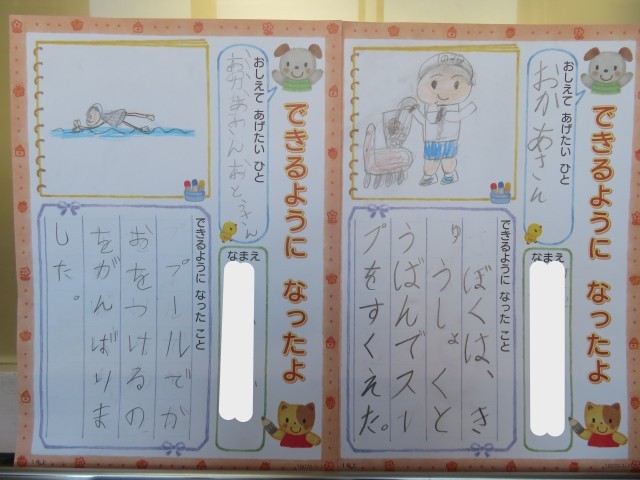 できるように なったよ
おしえて あげたい ひと
おかあさん
なまえ
できるように なった こと
ぼくは、き
ゅうしょくと
うばんでスー
プをすくえた。
できるように なったよ
おしえて あげたい ひと
おかあさんおとうさん
なまえ
できるように なった こと
プールでか
おをつけるの
をがんばりま
した。